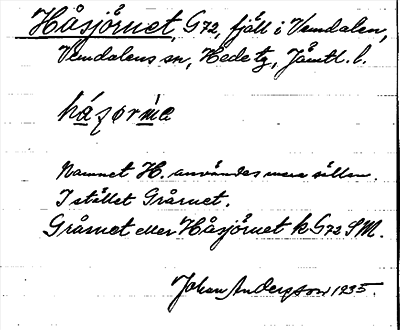 Håsjörnet G72, fjäll i Vemdalen,
Vemdalens sn, Hede tg, Jämtl. l.
håȥorna
Namnet H. användes mera sällan.
I stället Gråsnet.
Gråsnet eller Håsjörnet k G72 SM.
Johan Andersson 1935.